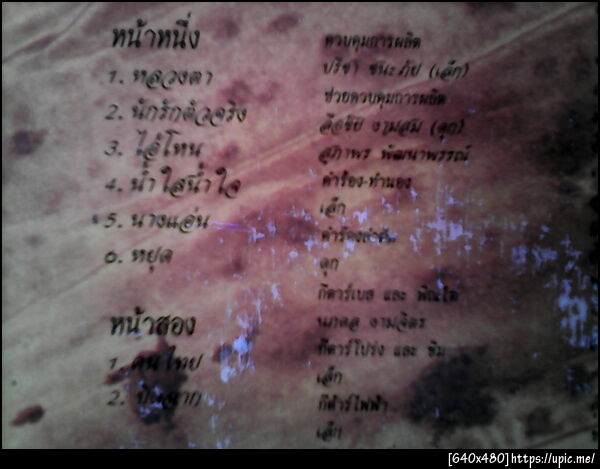 หน้าหนึ่ง
1. หลวงตา
2. นักรักตัวจริง
3. ไอ้โหน
4. น้ำใสน้ำใจ
5. นางแอ่น
๐. หยุด
หน้าสอง
1. คนไทย
2.
ควบคุมการผลิต
ปรีชา ชนะภัย (เล็ก)
ช่วยควบคุมการผลิต
ลือชัย งามสม (ดุก)
สุภาพร พัฒนาพรรณ์
คำร้อง-ทำนอง
เล็ก
ดุก
กีตาร์เบส และ
นภดล งามจิตร
กีตาร์โปร่ง และ ขิม
เล็ก
กีต้าร์ไฟฟ้า
เล็ก
[640x480]https://upic.me/